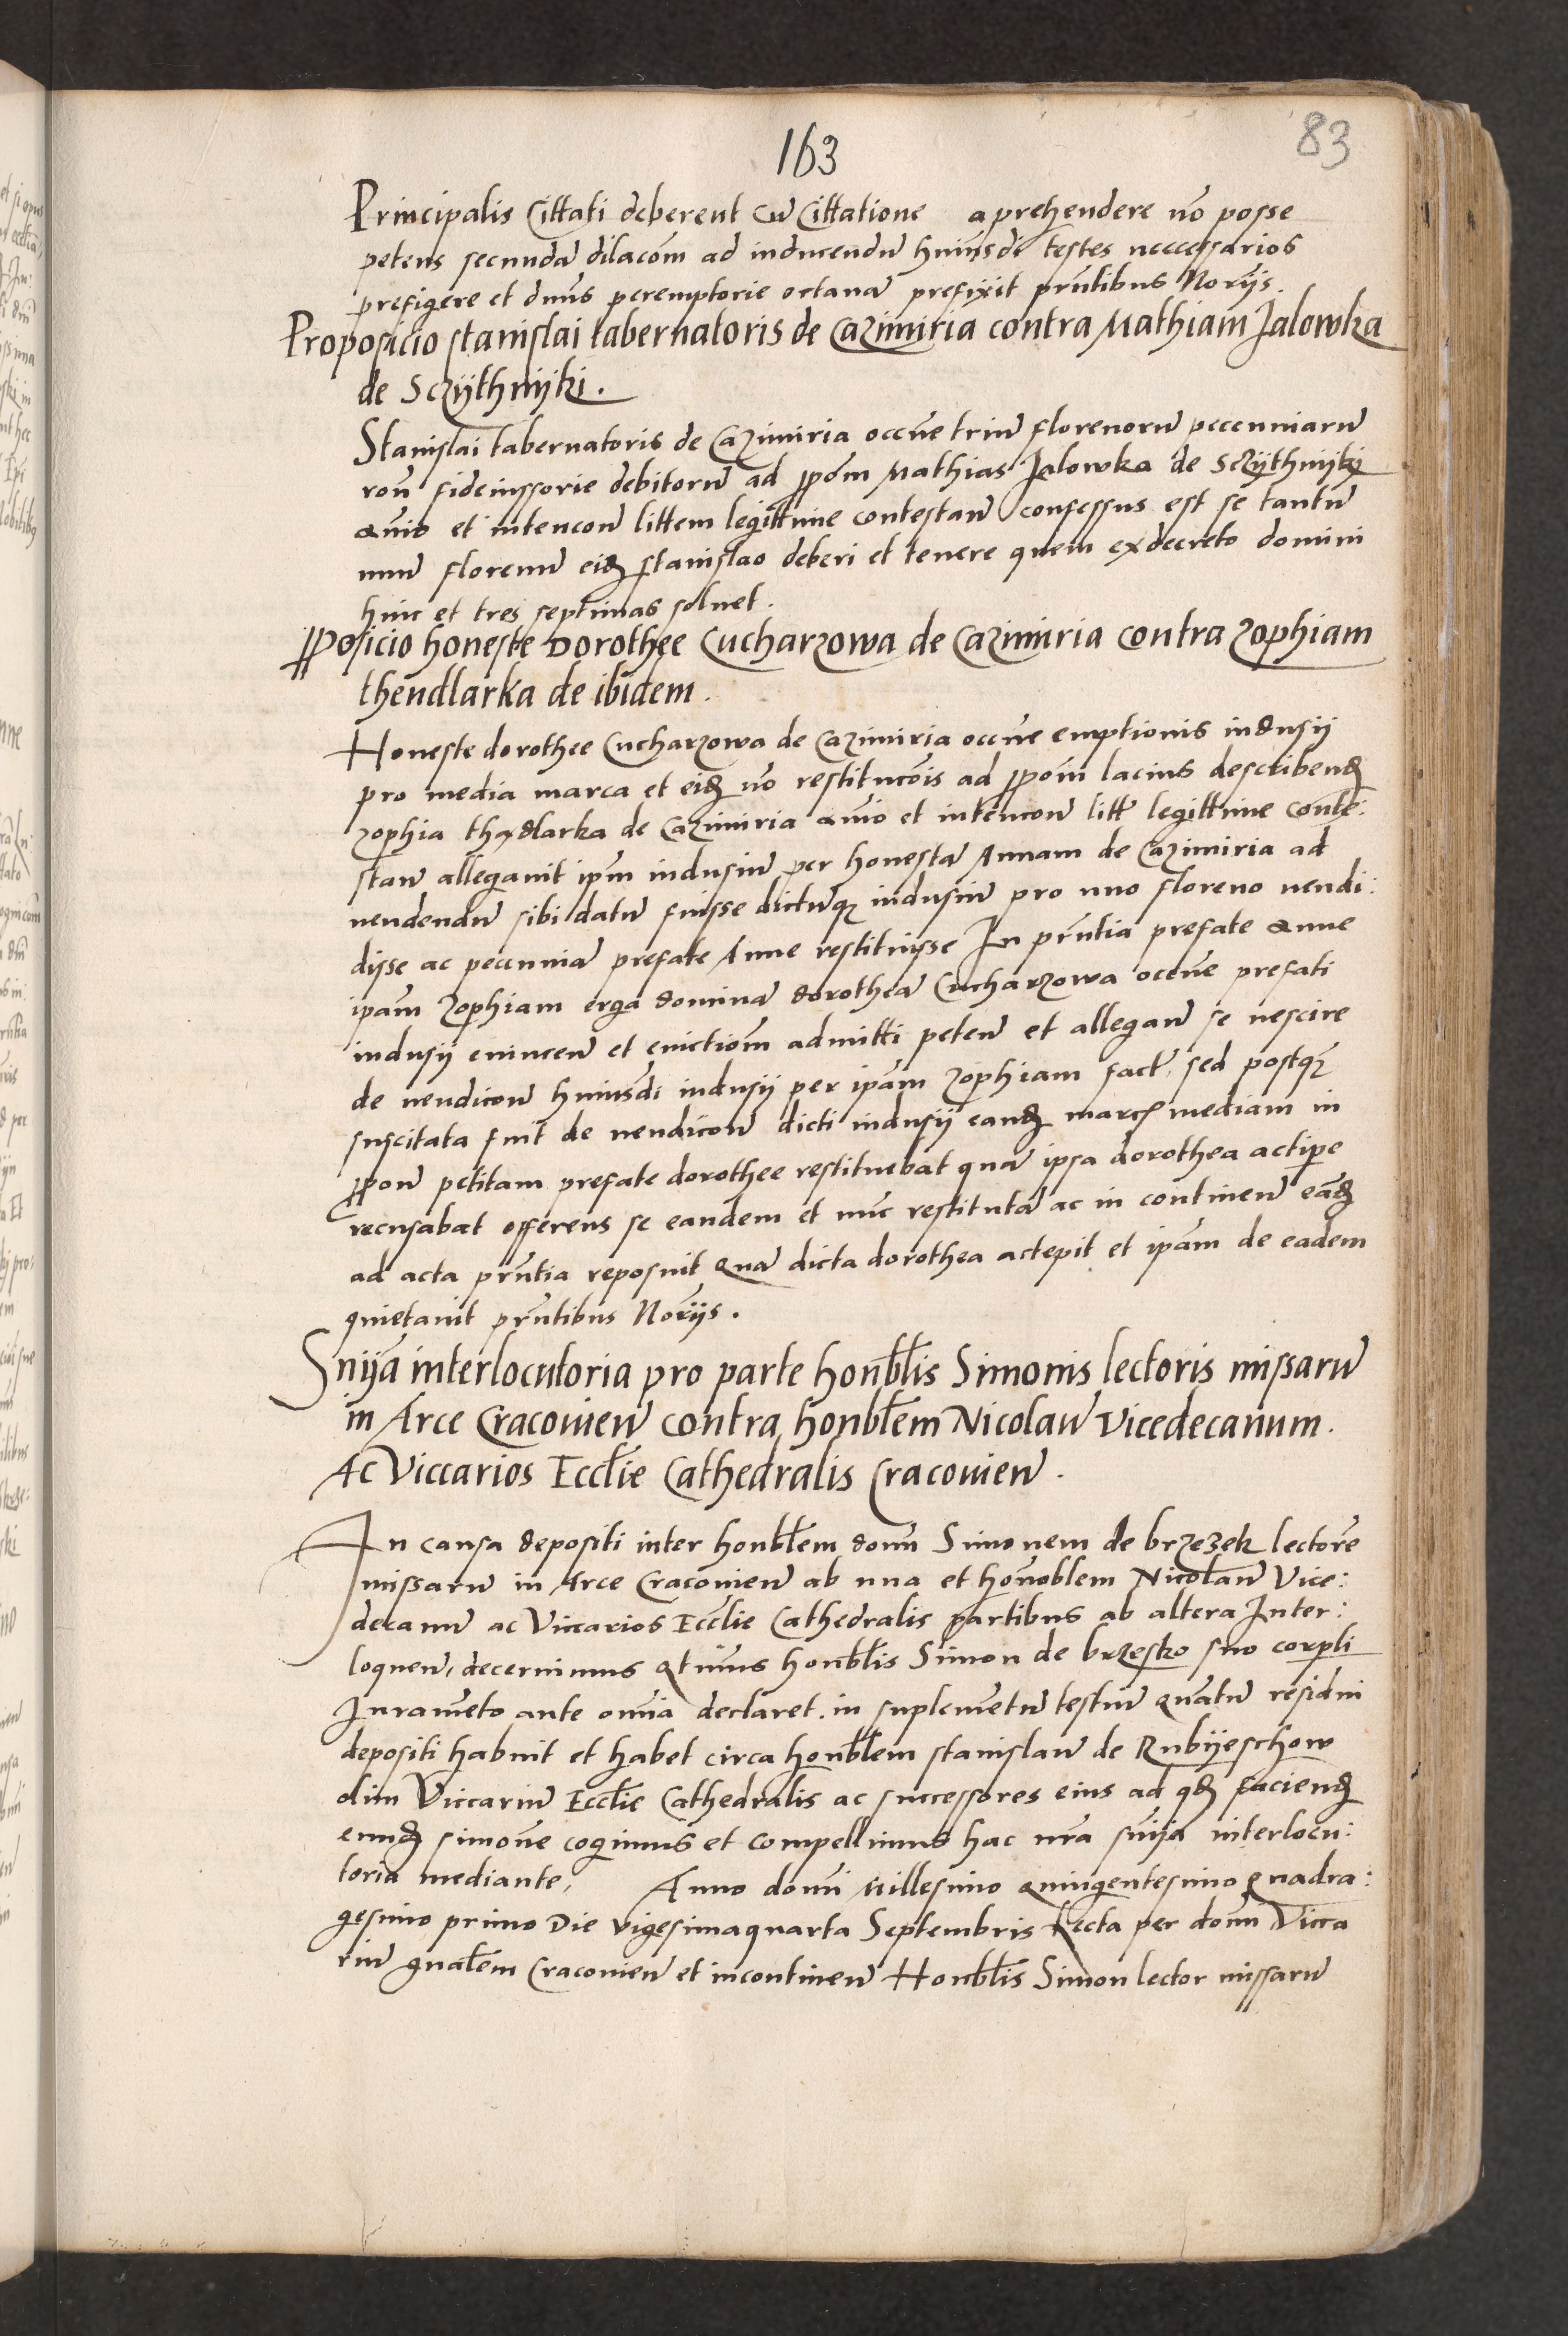 163
83
Principalis Cittati deberent cū Cittatione aprehendere nō posse
petens secundā dilacōm ad inducendū huiusdi testes neccessarios
prefigere et dnus peremptorie octauā prefixit prntibus Norijs.
Proposicio stanislai tabernatoris de Cazimiria contra Mathiam Jalowka
de Sczijthnijki.
Stanislai tabernatoris de Cazimiria occne triū florenorū peccuniarū
ron̄ fideiussorie debitorū ad ppōm Mathias Jalowka de Sczijthnijki
animo et intencon̄ littem legittime contestan̄ confessus est se tantū
unū florenū eidem stanislao deberi et tenere quem ex decreto domini
hinc et tres septimas soluet.
Pposicio honeste Dorothee Cucharzowa de Cazimiria contra zophiam
thendlarka de ibidem.
Honeste dorothee Cucharzowa de Cazimiria occne emptionis indusij
pro media marca et eiusdem nō restitucōis ad ppōm lacius describendam
zophia thędlarka de Cazimiria animo et intencon̄ litt legittime conte:
stan̄ allegauit ipm indusiū per honestā Annam de Cazimiria ad
uendendū sibi datū fuisse dictūq indusiū pro uno floreno uendi:
disse ac peccuniā prefate Anne restituisse In prntia prefate Anne
ipam zophiam erga dominā dorotheā Cucharzowa occne prefati
indusij euincen̄ et euictiom admitti peten̄ et allegan̄ se nescire
de uendicon̄ huiusdi indusij per ipam zophiam fact, sed postq
suscitata fuit de uendicon̄ dicti indusij eandem marcam mediam in
ppon̄ petitam prefate dorothee restituebat quā ipsa dorothea actipe
recusabat offerens se eandem et nunc restituturā ac in continen̄ eandem
ad acta prntia reposuit quā dicta dorothea actepit et ipam de eadem
quietauit prntibus Norijs.
Snija interlocutoria pro parte honblis Simonis lectoris missarū
in Arce Cracouien̄ contra honblem Nicolaū Vicedecanum.
Ac Viccarios Ecclie Cathedralis Cracouien̄.
In causa depositi inter honblem domn Simonem de brzezek lectore
missarū in Arce Cracouien̄ ab una et honoblem Nicolaū Vice:
decanū ac Viccarios Ecclie Cathedralis partibus ab altera Inter:
loquen̄, decernimus qtinus honblis Simon de brzesko suo corpli
Juramēto ante omia declaret in suplemētū testiū quātū residui
depositi habuit et habet circa honblem stanislaū de Rubijeschow
olim Viccariū Ecclie Cathedralis ac successores eius ad quod faciendum
eundem simone cogimus et compellimus hac nra snija interlocu:
toria mediante, Anno domi Millesimo quingentesimo quadra:
gesimo primo Die vigesimaquarta Septembris Lecta per domn Vicca
riū gnalem Cracouien̄ et incontinen̄ Honblis Simon lector missarū